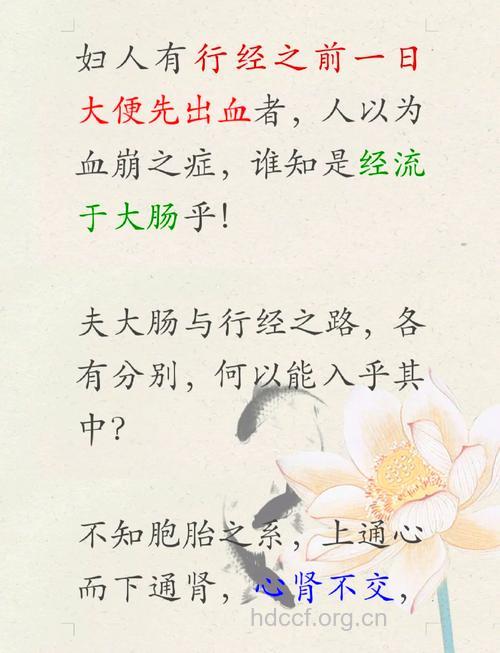 妇人有行经之前一日
大便先出血者，人以为
血崩之症，谁知是经流
于大肠乎！
夫大肠与行经之路，各
有分别，何以能入乎其
中？
不知胞胎之系，上通心
而下通肾，心肾不交，
hdccf.org.cn